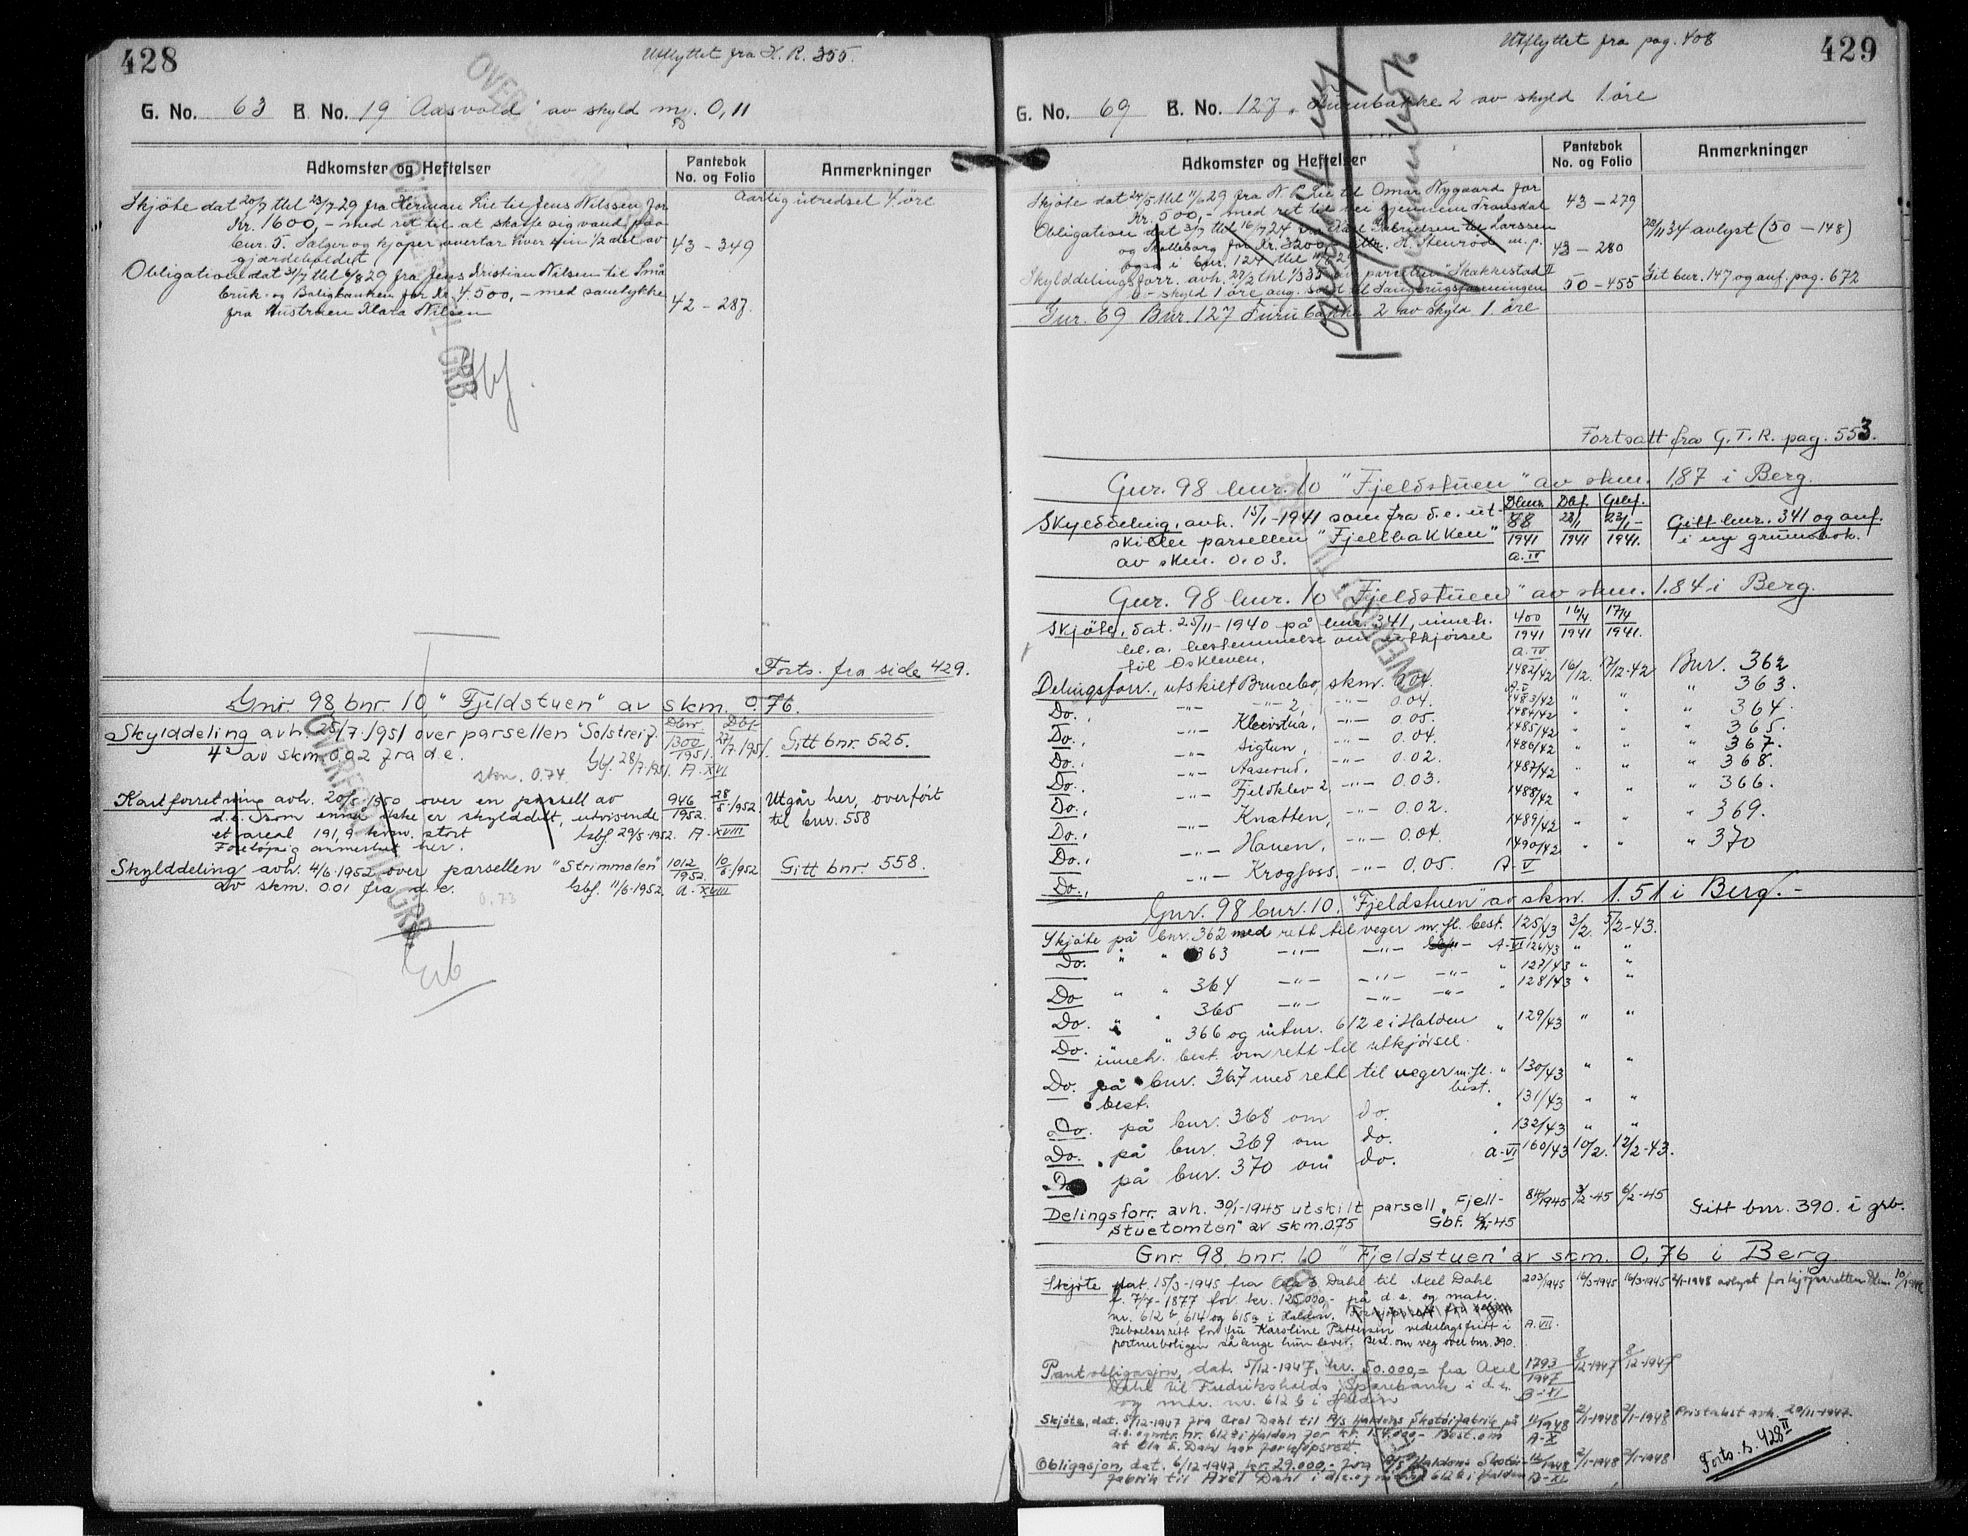 428
Utflyttet fra K. R. 355.
G. No. 63 B. No. 19 "Aasvold" av skyld m. 0,11
Adkomster og Heftelser
Pantebok No. og Folio
Anmerkninger
Skjøte dat 20/7 thl 23/7 29 fra Herman Lie til Jens Nilssen for
Kr. 1600,- med ret til at skaffe sig vand paa
bnr. 5. Sælger og kjøper overtar hver sin 1/2 del av
gjærdeholdet
43 - 349
Aarlig utredsel 4 øre
Obligation dat 31/7 thl 6/8 29 fra Jens Kristian Nilsen til Små
bruk- og Boligbanken for Kr. 4.500,- med samtykke
fra Hustruen Klara Nilsen
42 - 287.
Forts. fra side 429.
Gnr 98 bnr 10 "Fjeldstuen" av skm. 0.76.
Dbnr Dbf
Skylddeling avh. 25/7-1951 over parsellen "Solstreif 1300 27/7 1951. Gitt bnr. 525.
4" av skm. 0.02 fra d.e. Gbf. 28/7 1951. 1951. A-XVI
skm. 0.74.
Kartforretning avh. 20/5 1950 over en parsell av 946 28/5 1952 Utgår her, overført
d.e. som ennå ikke er skylddelt, utvisende 1952. til bnr. 558
et areal 191,9 kvm. stort Gbf 29/5-1952. A-XVIII
Foreløpig anmerket her.
Skylddeling avh. 4/6-1952 over parsellen "Strimmalen" 1012 10/6 1952 Gitt bnr. 558.
av skm. 0.01 fra d.e. Gbf. 11/6-1952. 1952. A-XVIII
0,73
OVERFØRT TIL GRB.
429
Utflyttet fra pag. 408
G. No. 69 B. No. 127. "Furubakke 2 av skyld 1 øre
Adkomster og Heftelser
Pantebok No. og Folio
Anmerkninger
Skjøte dat 24/5 thl 4/6 29 fra N. P. Lie til Omar Nygaard for
Kr. 500,- med ret til vei gjennem Fransdal
43 - 279
Obligation dat 3/7 thl 16/7 24 fra Gabrielsen til Larssen
og Skolleborg for Kr. 3200, H. Stenrød m. p.
43 - 280
22/11 34 avlyst (50 - 148)
ogsa i bnr. 124
Skylddelingsforr. avh. 27/2 thl 1/3 35 parsellen "Skakkestad II
skyld 1 øre
50 - 455 Git bnr. 147 og anf. pag. 672
Gnr. 69 Bnr. 127 Furubakke 2 av skyld 1 øre
Fortsatt fra G.T.R. pag. 553.
Gnr. 98 bnr. 10 "Fjeldstuen" av skm. 1.87 i Berg.
Dbnr. Dbf. Gbf.
Skylddeling, avh. 15/1-1941 som fra d.e. ut- 88 22/1 23/1 Gitt bnr. 341 og anf.
skiller parsellen "Fjellbakken" 1941 1941 1941. i ny grunnbok.
av skm. 0.03. A.IV
Gnr. 98 bnr. 10 "Fjeldstuen" av skm. 1.84 i Berg.
Skjøte, dat. 25/11-1940 på bnr. 341, inneh. 400 16/4 17/4
bl.a. bestemmelse om utkjørsel 1941 1941 1941.
til Oskleven. A.IV
Delingsforr., utskilt Brucebo, skm. 0.04. 1482/42 16/12. 17/12-42 Bnr. 362
Do., -"- -"- 2, -"- 0.04. 1483/42 " " " 363.
Do., -"- Kleivstua, -"- 0.05. 1484/42 " " " 364.
Do., -"- Sigtun, -"- 0.04. 1485/42 " " " 365.
Do., -"- Aaserud, -"- 0.02. 1486/42 " " " 367.
Do., -"- Fjeldklev 2, -"- 0.03. 1487/42 " " " 368.
Do., -"- Knatten, -"- 0.02. 1488/42 " " " 366.
Do., -"- Hauen, -"- 0.04. 1489/42 " " " 369.
Do., -"- Krogfoss, -"- 0.05. A-V 1490/42 " " " 370
Gnr. 98 bnr. 10. "Fjeldstuen" av skm. 1.51 i Berg.-
Skjøte på bnr. 362 med rett til veger m.fl. best. 125/43 3/2. 5/2-43.
Do. " " 363 -"- -"- A-VI 126/43 " "
Do " " 364 -"- -"- -"- " 127/43 " "
Do. " " 365 -"- -"- -"- " 128/43 " "
Do. " " 366 og mtnr. 612 e i Halden " 129/43 " "
inneh. best. om rett til utkjørsel.
Do. på bnr. 367 med rett til veger m.fl. " 130/43 " "
best.
Do. på bnr. 368 om do. " 131/43 " "
Do. på bnr. 369 om do. " 132/43 " "
Do på bnr. 370 om do. A-VI 160/43 10/2. 12/2-43.
Delingsforr. avh. 30/1-1945 utskilt parsell "Fjell- 84/1945 3/2-45 6/2-45 Gitt bnr. 390. i grb.
stuetomten" av skm. 0.75 Gbf. 6/2-45
Gnr. 98. bnr. 10 "Fjeldstuen" av skm. 0,76 i Berg
Skjøte dat. 15/3-1945 fra Ola E. Dahl til Axel Dahl 203/1945 16/3-1945 16/3-1945 2/1-1948 avlyst forkjøpsretten
f. 7/7-1877 for kr. 125.000,- på d.e. og matr.
nr. 612 b, 614 og 615a i Halden.
Beboelsesrett for fru Karoline Pettersen vederlagsfritt i A.VII.
portnerboligen så lenge hun lever. Best. om veg over bnr. 390.
Pantobligasjon, dat. 5/12-1947, kr. 50.000,- fra Axel 1793 8/12-1947 8/12-1947
Dahl til Fredrikshalds Sparebank i d.e. 1947
og mtr. nr. 612 b i Halden B-XI
Skjøte, dat. 5/12-1947 fra Axel Dahl til A/S Haldens Skotøifabrik på 11/1948 2/1-1948 2/1-1948 Pristakst avh. 29/11-1947.
d.e. og mtr. nr. 612 b i Halden for kr. 154.000,- Best. om A-X
at Ola E. Dahl har forkjøpsrett.
Obligasjon, dat. 6/12-1947 kr. 29.000,- fra A/S Haldens Skotøi- 12/1948 2/1-1948 2/1-1948
fabrik til Axel Dahl i d.e. og mtr. nr. 612 b i Halden B-XI
Forts. s. 428 II